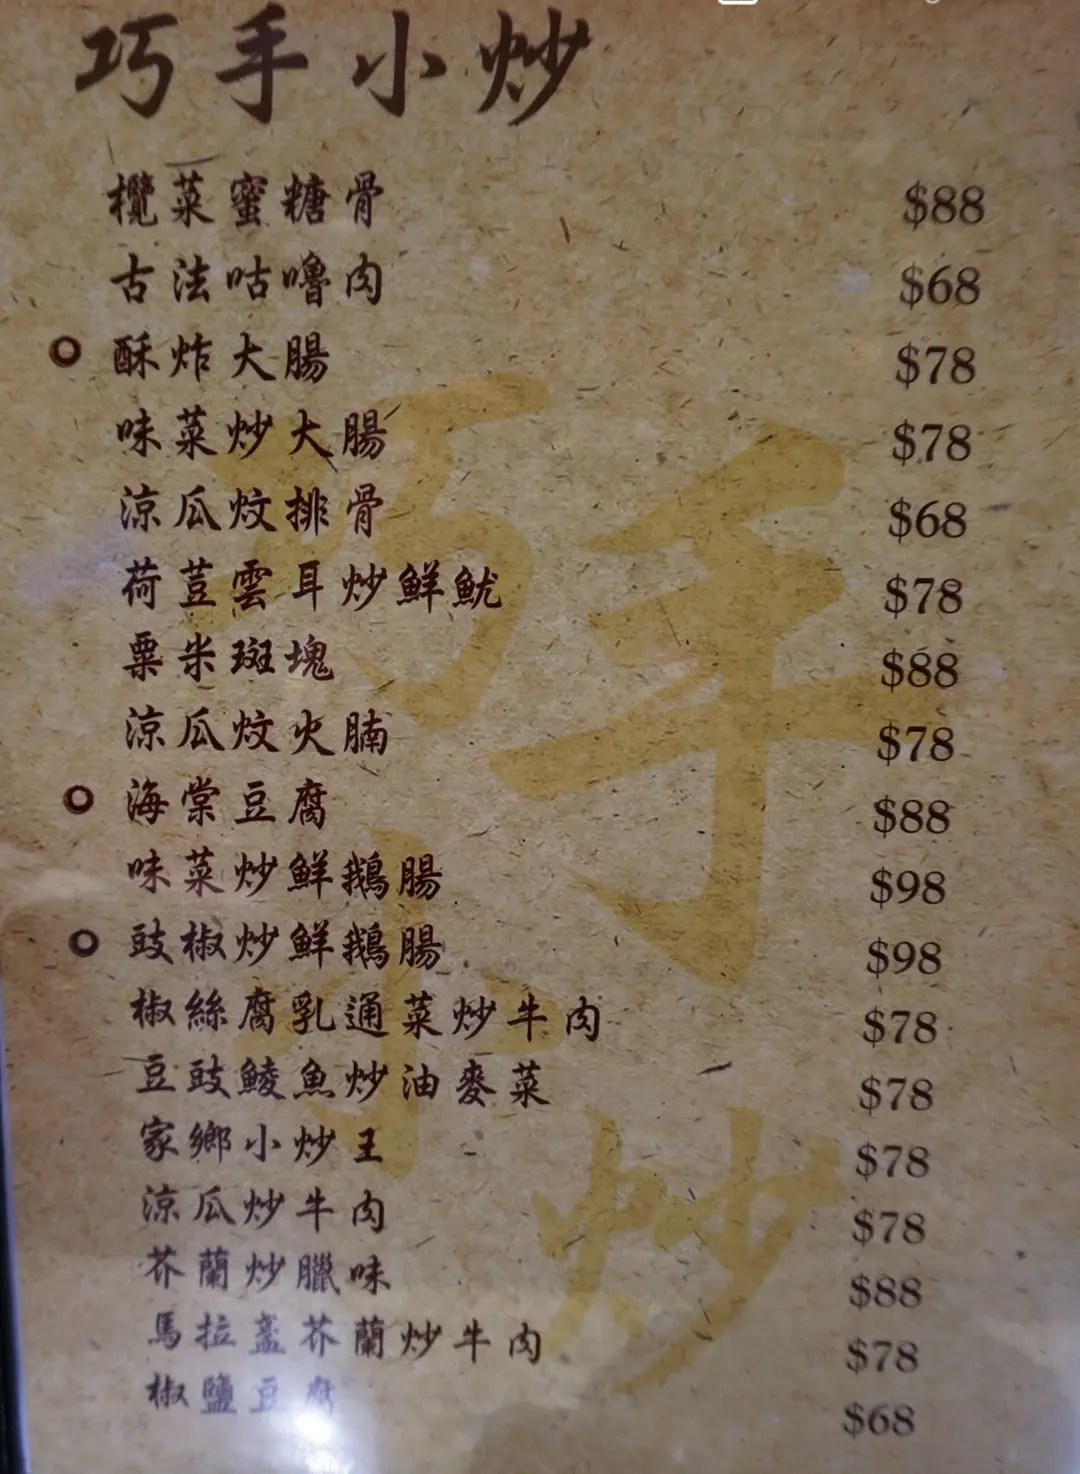 巧手小炒
欖菜蜜糖骨 $88
古法咕嚕肉 $68
酥炸大腸 $78
味菜炒大腸 $78
涼瓜炆排骨 $68
荷荳雲耳炒鮮魷 $78
粟米斑塊 $88
涼瓜炆火腩 $78
海棠豆腐 $88
味菜炒鮮鵝腸 $98
豉椒炒鮮鵝腸 $98
椒絲腐乳通菜炒牛肉 $78
豆豉鯪魚炒油麥菜 $78
家鄉小炒王 $78
涼瓜炒牛肉 $78
芥蘭炒臘味 $88
馬拉盞芥蘭炒牛肉 $78
椒鹽豆腐 $68